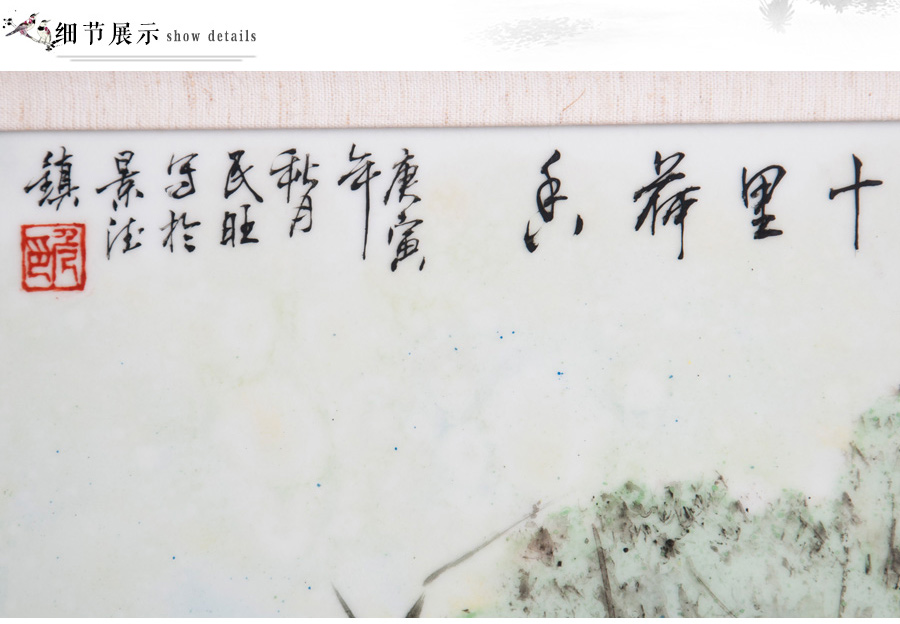 细节展示 show details
十里荷香
庚寅
年
秋月
民旺
写於
景德
鎮